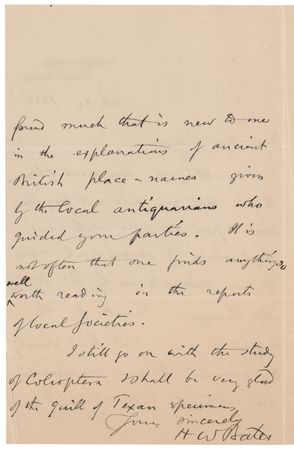 found much that is new to me
in the explanations of ancient
British place-names given
by the local antiquarians who
guided your parties. It is
not often that one finds anything so
well
worth reading in the reports
of local Societies.
I still go on with the study
of Coleoptera & shall be very glad
of the gift of Texan specimens
Yours sincerely
H W Bates